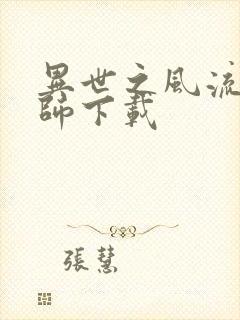 異世之風流
師下載
張慧